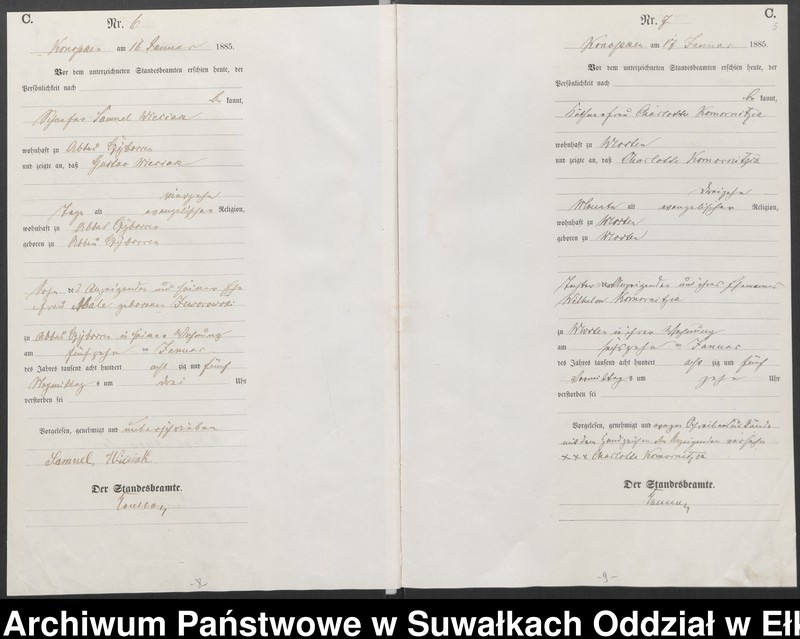 C.
Nr. 6
am 16 Januar 1885.
Vor dem unterzeichneten Standesbeamten erschien heute, der
Persönlichkeit nach
be kannt,
Samuel Wiesiak
wohnhaft zu Abbau
und zeigte an, daß Gustav Wiesiak
vierzehn
Tage alt evangelischer Religion,
wohnhaft zu Abbau
geboren zu Abbau
Sohn des Anzeigenden und seiner Ehe
frau geborenen
zu Abbau in seiner Wohnung
am fünfzehn ten Januar
des Jahres tausend acht hundert acht zig und fünf
Nachmittags um drei Uhr
verstorben sei
Vorgelesen, genehmigt und unterschrieben
Samuel Wiesiak
Der Standesbeamte.
-8-
C.
5
Nr. 7
am 17 Januar 1885.
Vor dem unterzeichneten Standesbeamten erschien heute, der
Persönlichkeit nach
be kannt,
Käthnerfrau Charlotte Komornitzia
wohnhaft zu
und zeigte an, daß Charlotte Komornitzia
dreizehn
Monate alt evangelischer Religion,
wohnhaft zu
geboren zu
Tochter der Anzeigenden und ihres Ehemannes
Wilhelm Komornitzia
zu in ihrer Wohnung
am sechszehn ten Januar
des Jahres tausend acht hundert acht zig und fünf
Vormittags um zehn Uhr
verstorben sei
Vorgelesen, genehmigt und wegen Schreibensunkunde
mit dem Handzeichen der Anzeigenden versehen
+++ Charlotte Komornitzia
Der Standesbeamte.
-9-
Archiwum Państwowe w Suwałkach Oddział w Eł